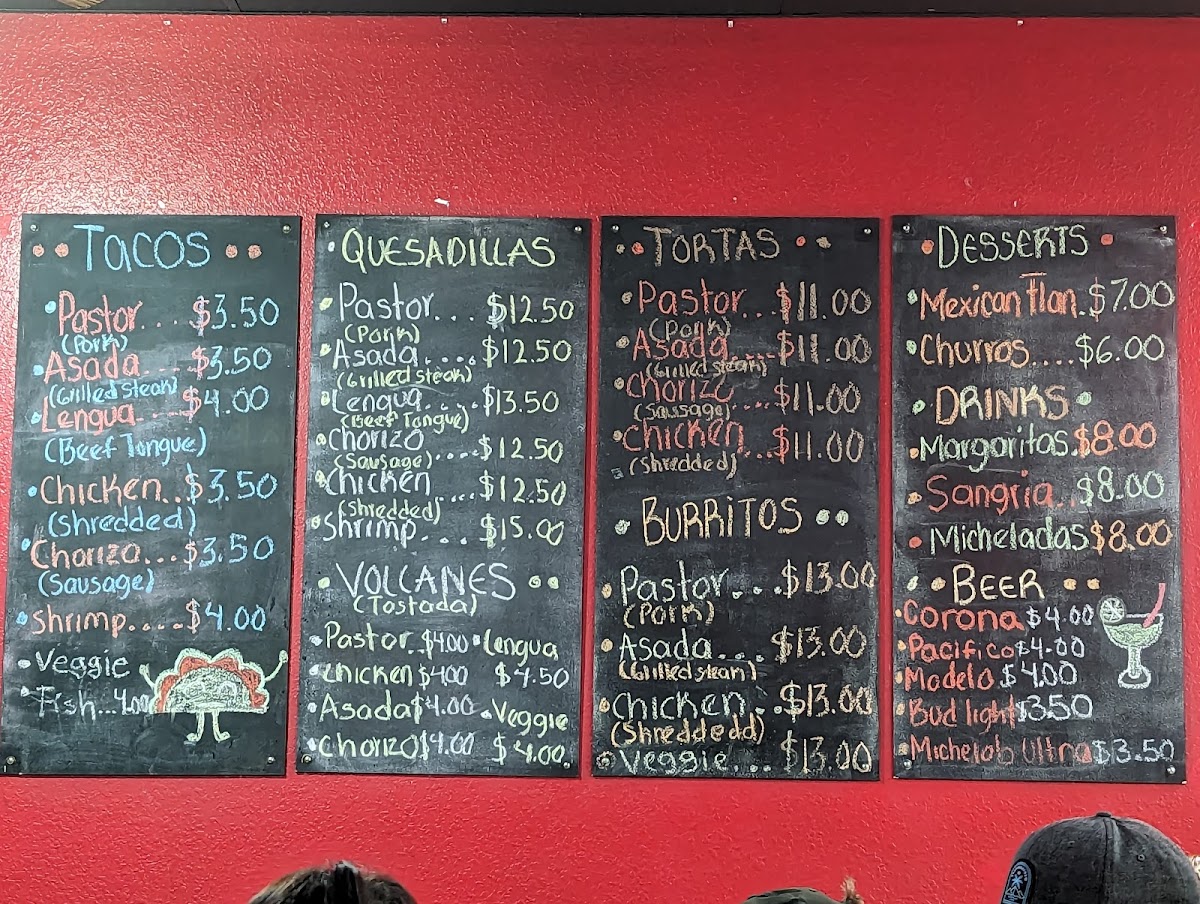 TACOS
Pastor.... $3.50
(Pork)
Asada.... $3.50
(Grilled Steak)
Lengua.... $4.00
(Beef Tongue)
Chicken.. $3.50
(shredded)
Chorizo... $3.50
(Sausage)
Shrimp.... $4.00
Veggie
Fish... 4.00
QUESADILLAS
Pastor... $12.50
(Pork)
Asada.... $12.50
(Grilled steak)
Lengua.... $13.50
(Beef Tongue)
Chorizo
(Sausage).... $12.50
Chicken.... $12.50
(shredded)
Shrimp.... $15.00
VOLCANES
(Tostada)
Pastor.. $4.00 • Lengua
Chicken $4.00 $4.50
Asada $4.00 • Veggie
Chorizo $4.00 $4.00.
TORTAS
Pastor... $11.00
(Pork)
Asada.... $11.00
(Grilled steak)
Chorizo
(Sausage)... $11.00
Chicken... $11.00
(Shredded)
BURRITOS
Pastor... $13.00
(Pork)
Asada... $13.00
(Grilled steak)
Chicken.. $13.00
(Shreddedd)
Veggie... $13.00
DESSERTS
Mexican Flan. $7.00
Churros.... $6.00
DRINKS
Margaritas. $8.00
Sangria... $8.00
Micheladas $8.00
BEER
Corona $4.00
Pacifico $4.00
Modelo $4.00
Bud light $3.50
Michelob Ultra $3.50